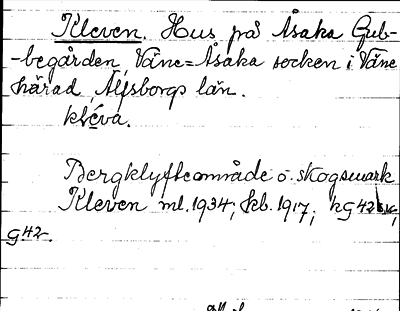 Kleven. Hus på Åsaka Gub-
-begården, Väne=Åsaka socken i Väne
härad, Älfsborgs län.
kléva.
Bergklyfteområde o. skogsmark
Kleven ml. 1934; kb. 1917; hG42
G42.